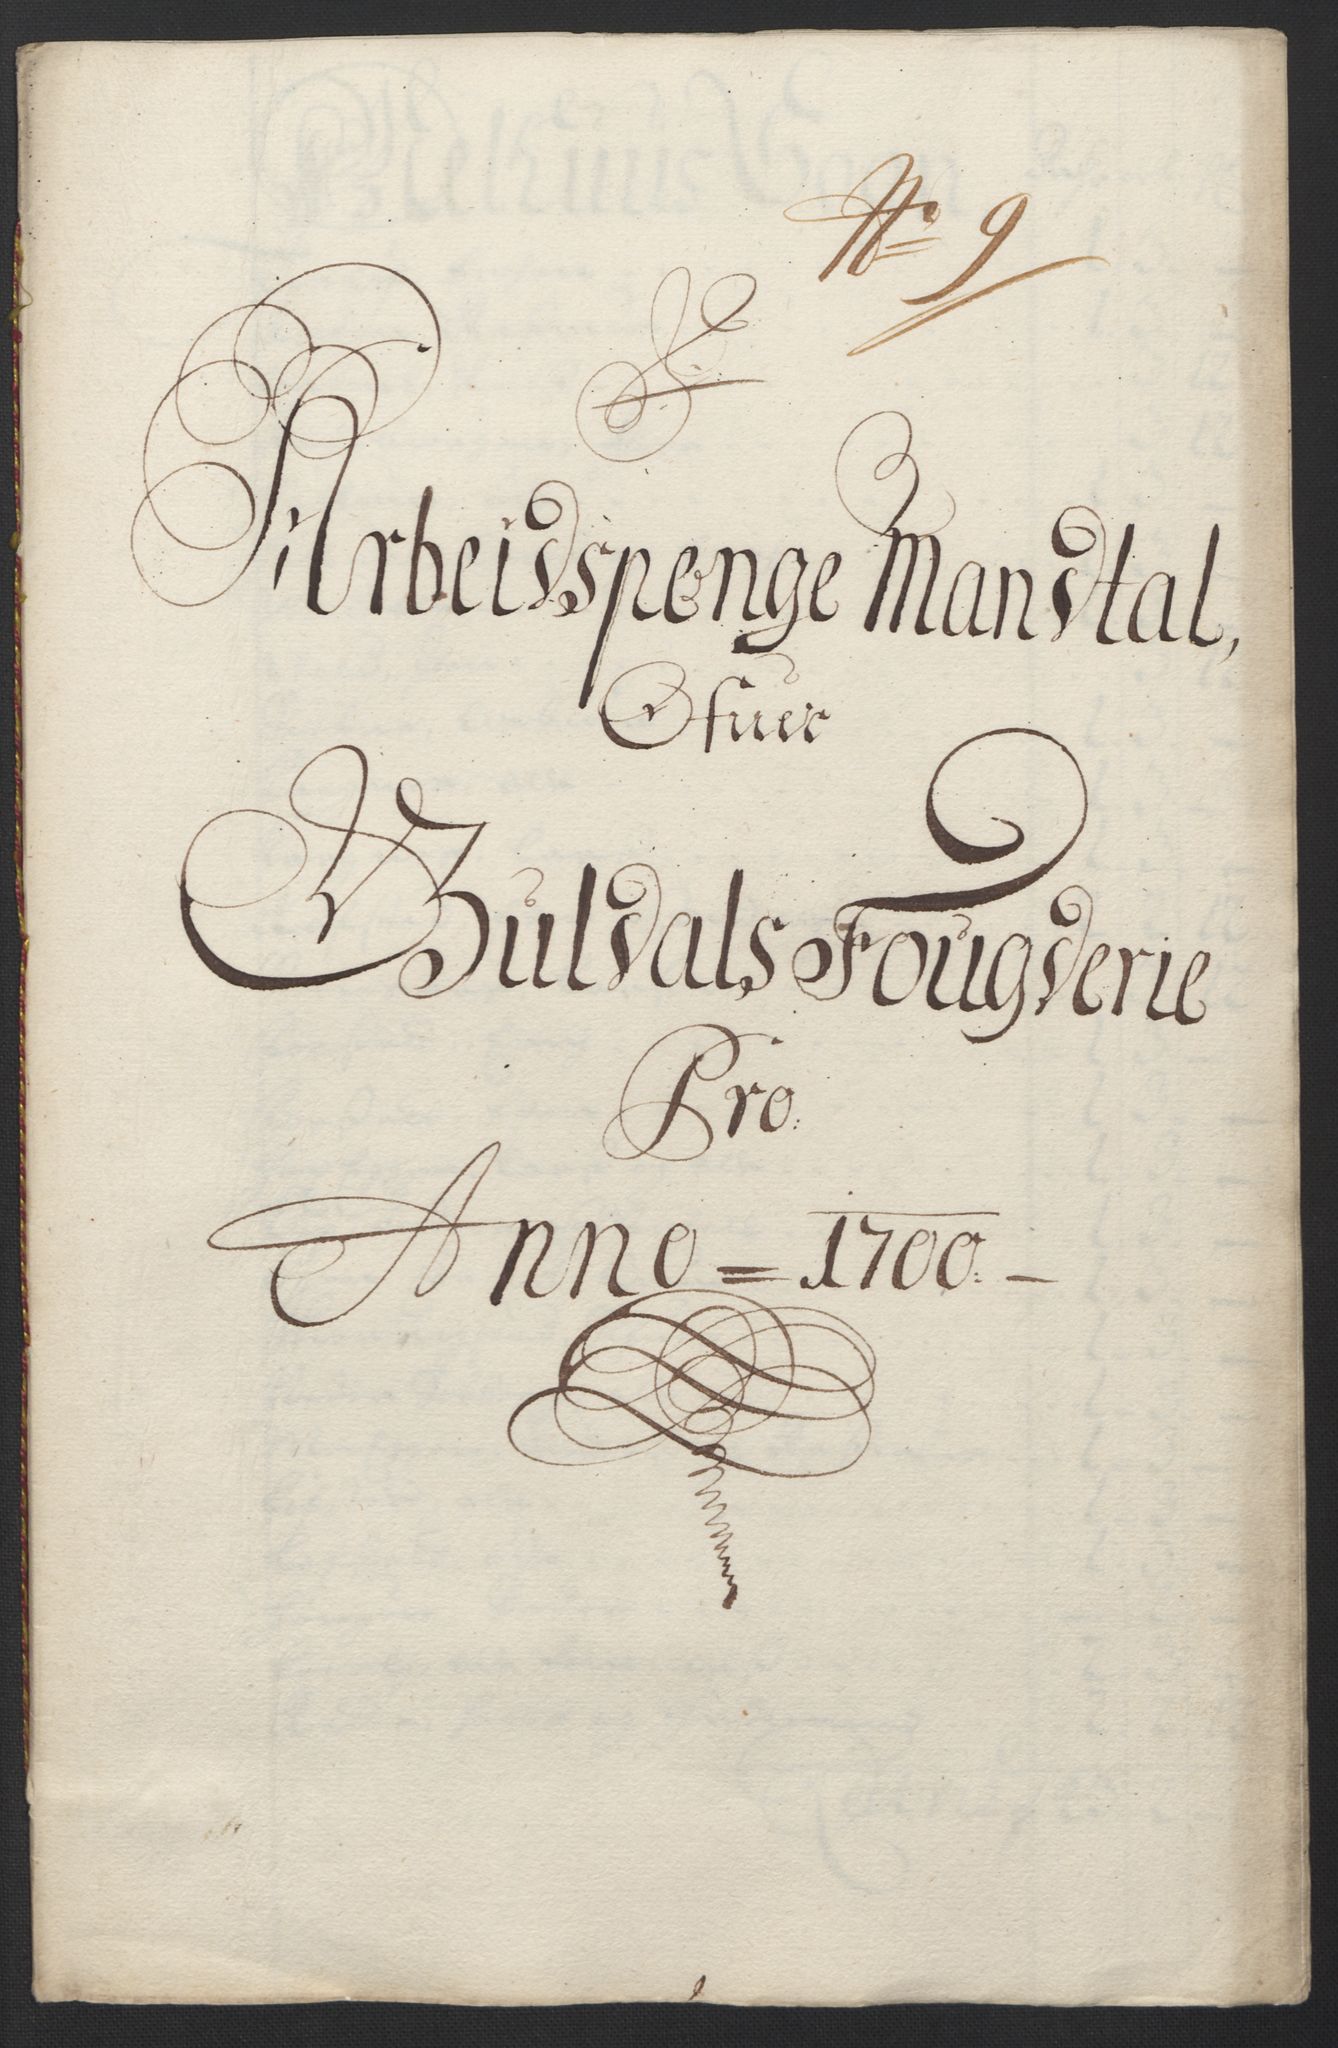 No 9
Arbeidspenge Mandtal,
Ofuer
Guldals Fougderie
Pro:
Anno = 1700. –